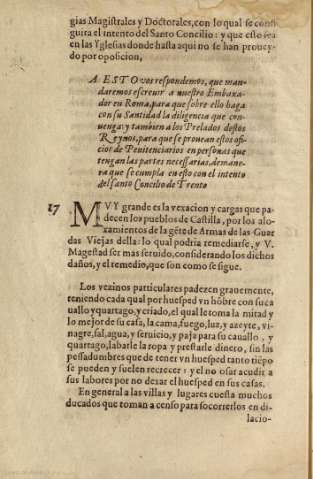 gias Magistrales y Doctorales, con lo qual se consi
guira el intento del Santo Concilio: y que esto sea
en las Yglesias donde hasta aqui no se han provey-
do por oposicion,
A ESTO vos respondemos, que man-
daremos escreuir a nuestro Embaxa-
dor en Roma, para que sobre ello haga
con su Santidad la diligencia que con-
uenga: y tambien a los Prelados destos
Reynos, para que se prouean estos ofi-
cios de Penitenciarios en personas que
tengan las partes necessarias, de mane-
ra que se cumpla en esto con el intento
del santo Concilio de Trento
17 MVY grande es la vexacion y cargas que pa-
decen los pueblos de Castilla, por los alo-
xamientos de la gẽte de Armas de las Guar
das Viejas della: lo qual podria remediarse, y V.
Magestad ser mas seruido, considerando los dichos
daños, y el remedio, que son como se sigue.
Los vezinos particulares padezen grauemente,
teniendo cada qual por huesped vn hõbre con su ca
uallo y quartago, y criado, el qual le toma la mitad y
lo mejor de su casa, la cama, fuego, luz, y azeyte, vi-
nagre, sal, agua, y seruicio, y paja para su cauallo, y
quartago, labarle la ropa y prestarle dinero, sin las
pessadumbres que de tener vn huesped tanto tiẽpo
se pueden y suelen recrecer: y el no osar acudir a
sus labores por no dexar el huesped en sus casas.
En general a las villas y lugares cuesta muchos
ducados que toman a censo para socorrerlos en di-
lacio-